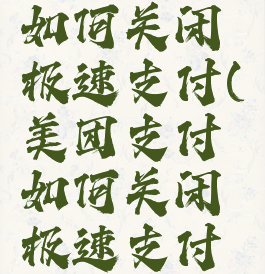 如何关闭
极速支付(
美团支付
如何关闭
极速支付